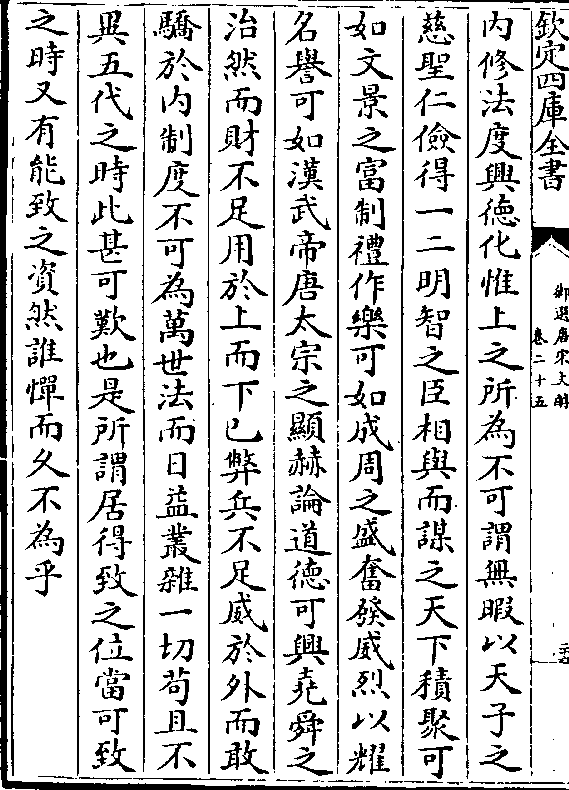 欽定四庫全書
御選唐宋文醇
卷二十五
內修法度興徳化惟上之所為不可謂無暇以天子之
慈聖仁儉得一二明智之臣相與而謀之天下積聚可
如文景之富制禮作樂可如成周之盛奮發威烈以耀
名譽可如漢武帝唐太宗之顯赫論道徳可興堯舜之
治然而財不足用於上而下已弊兵不足威於外而敢
驕於内制度不可為萬世法而日益叢雜一切苟且不
異五代之時此甚可歎也是所謂居得致之位當可致
之時又有能致之資然誰憚而久不為乎